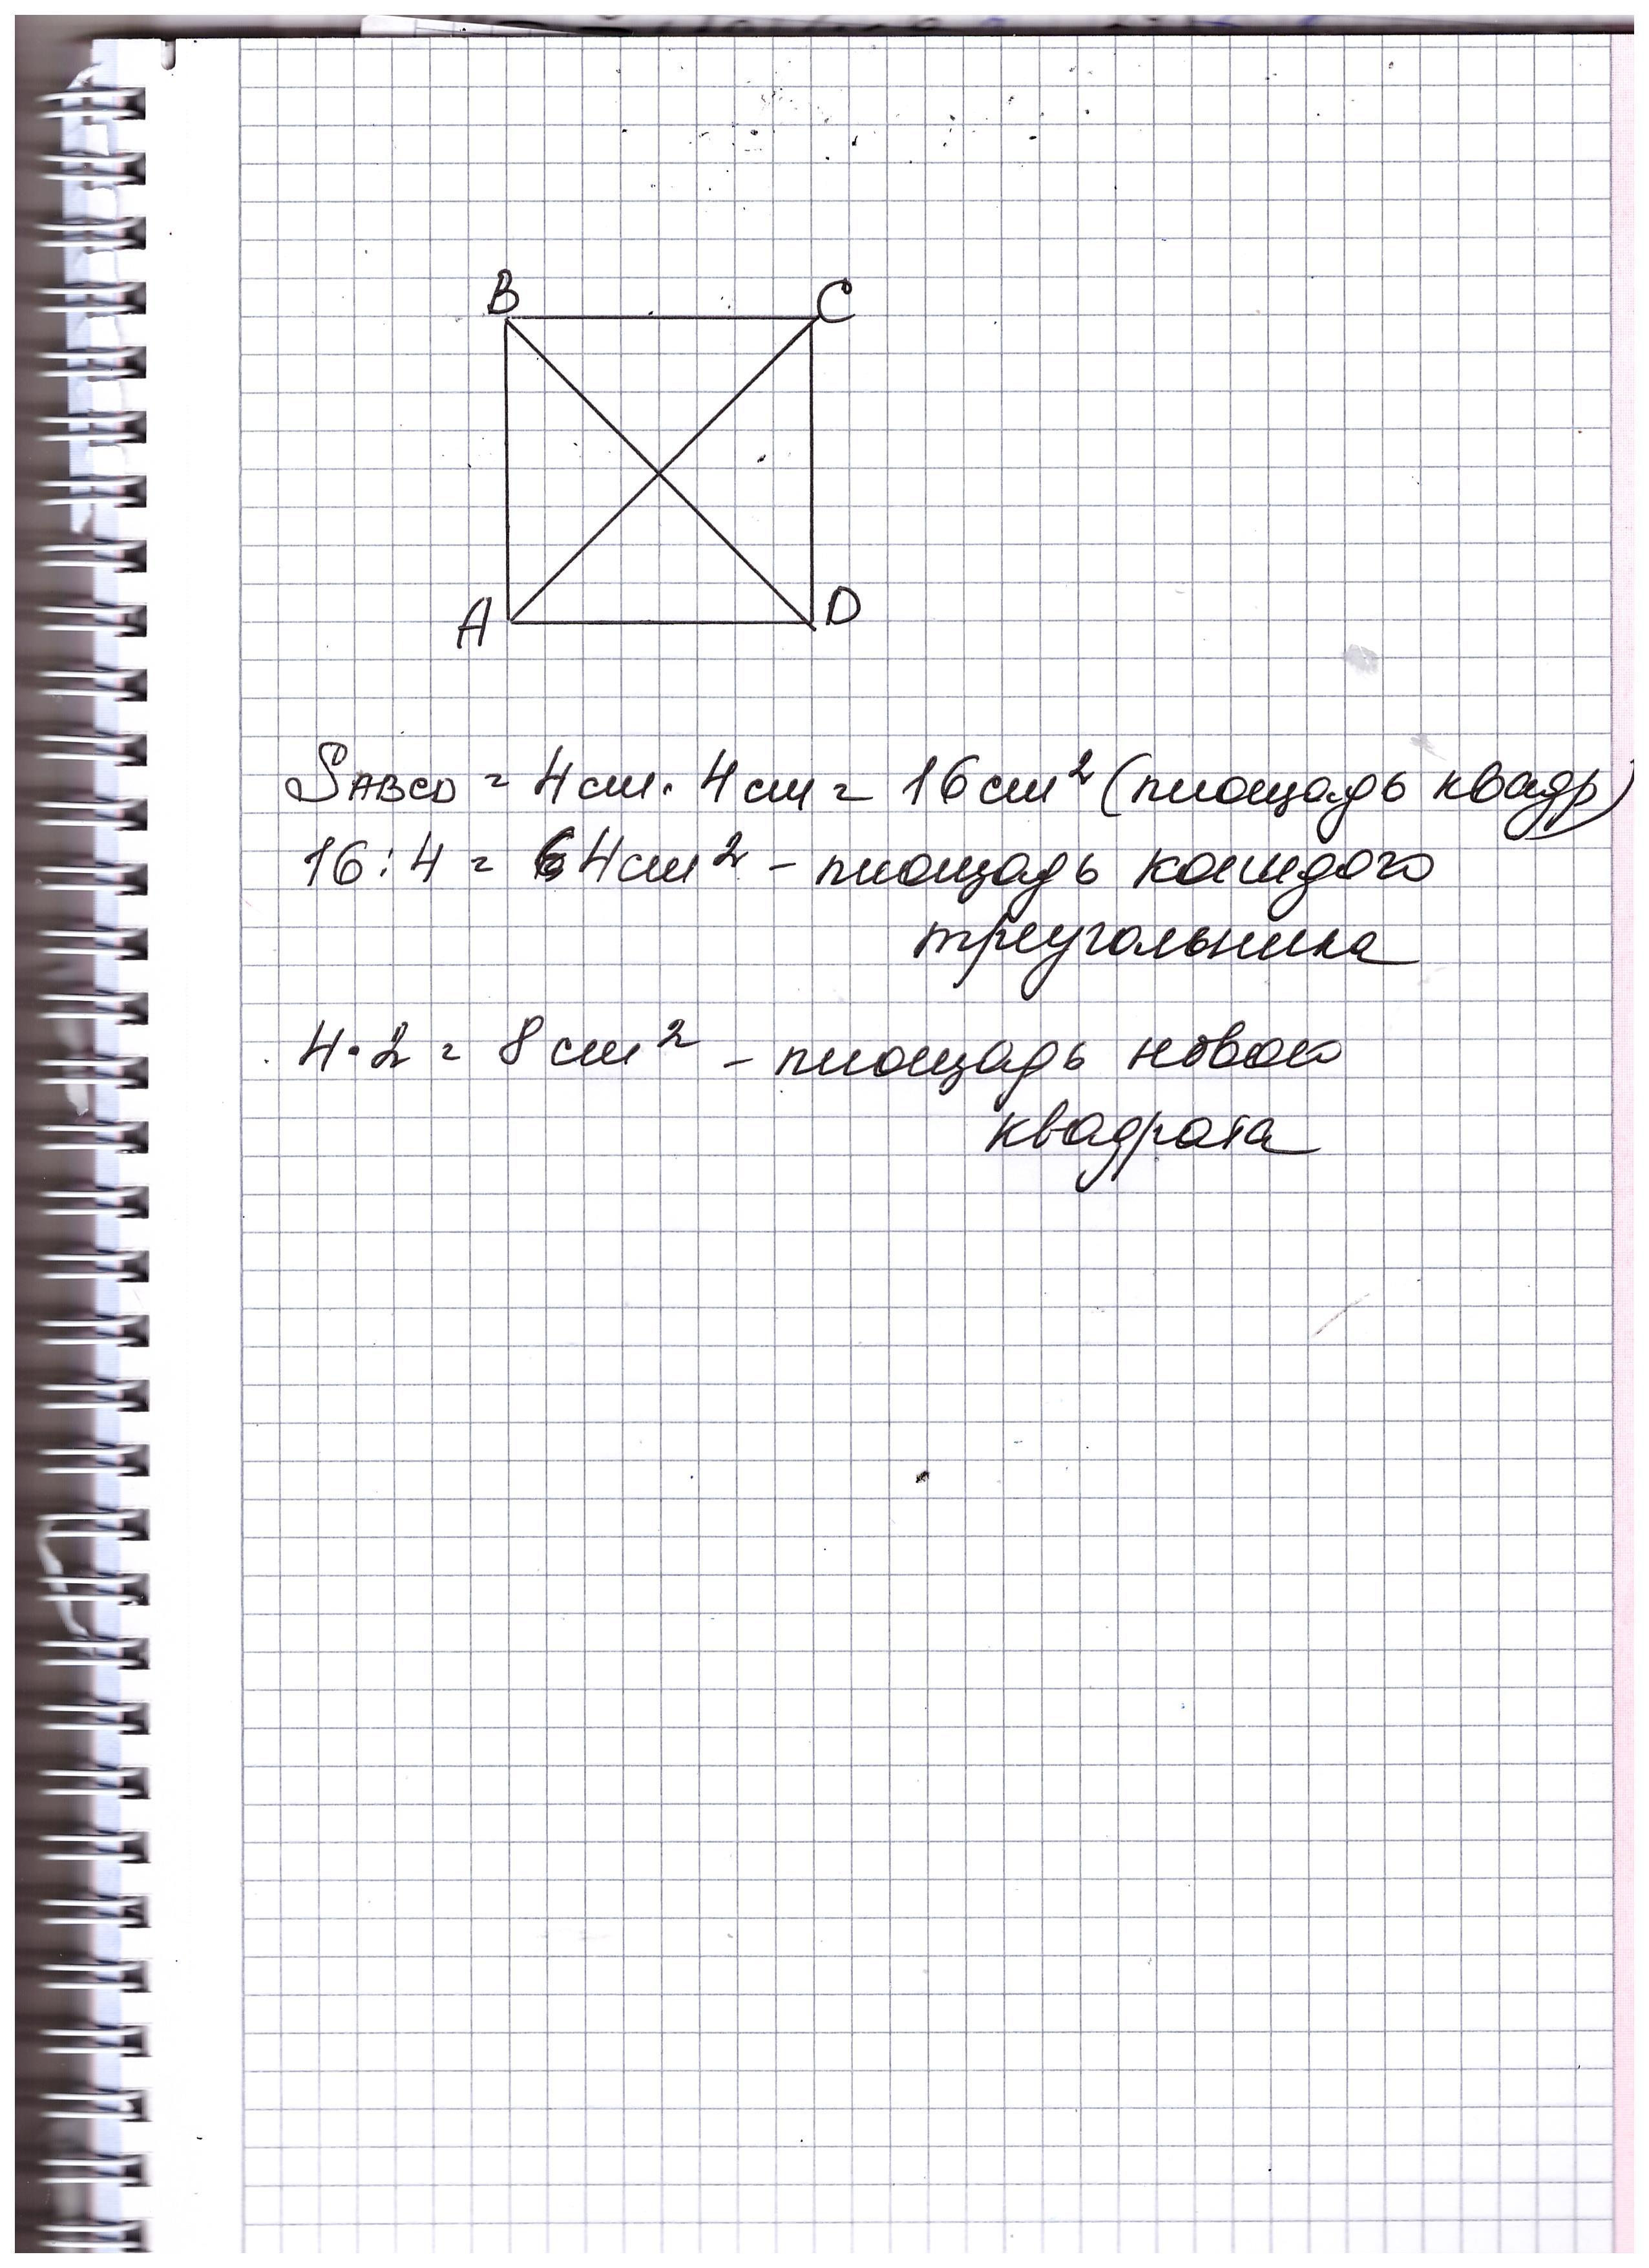 B C
A D
SABCD = 4см · 4см = 16см² (площадь квадр)
16 : 4 = 4см² - площадь каждого
треугольника
4 · 2 = 8см² - площадь нового
квадрата